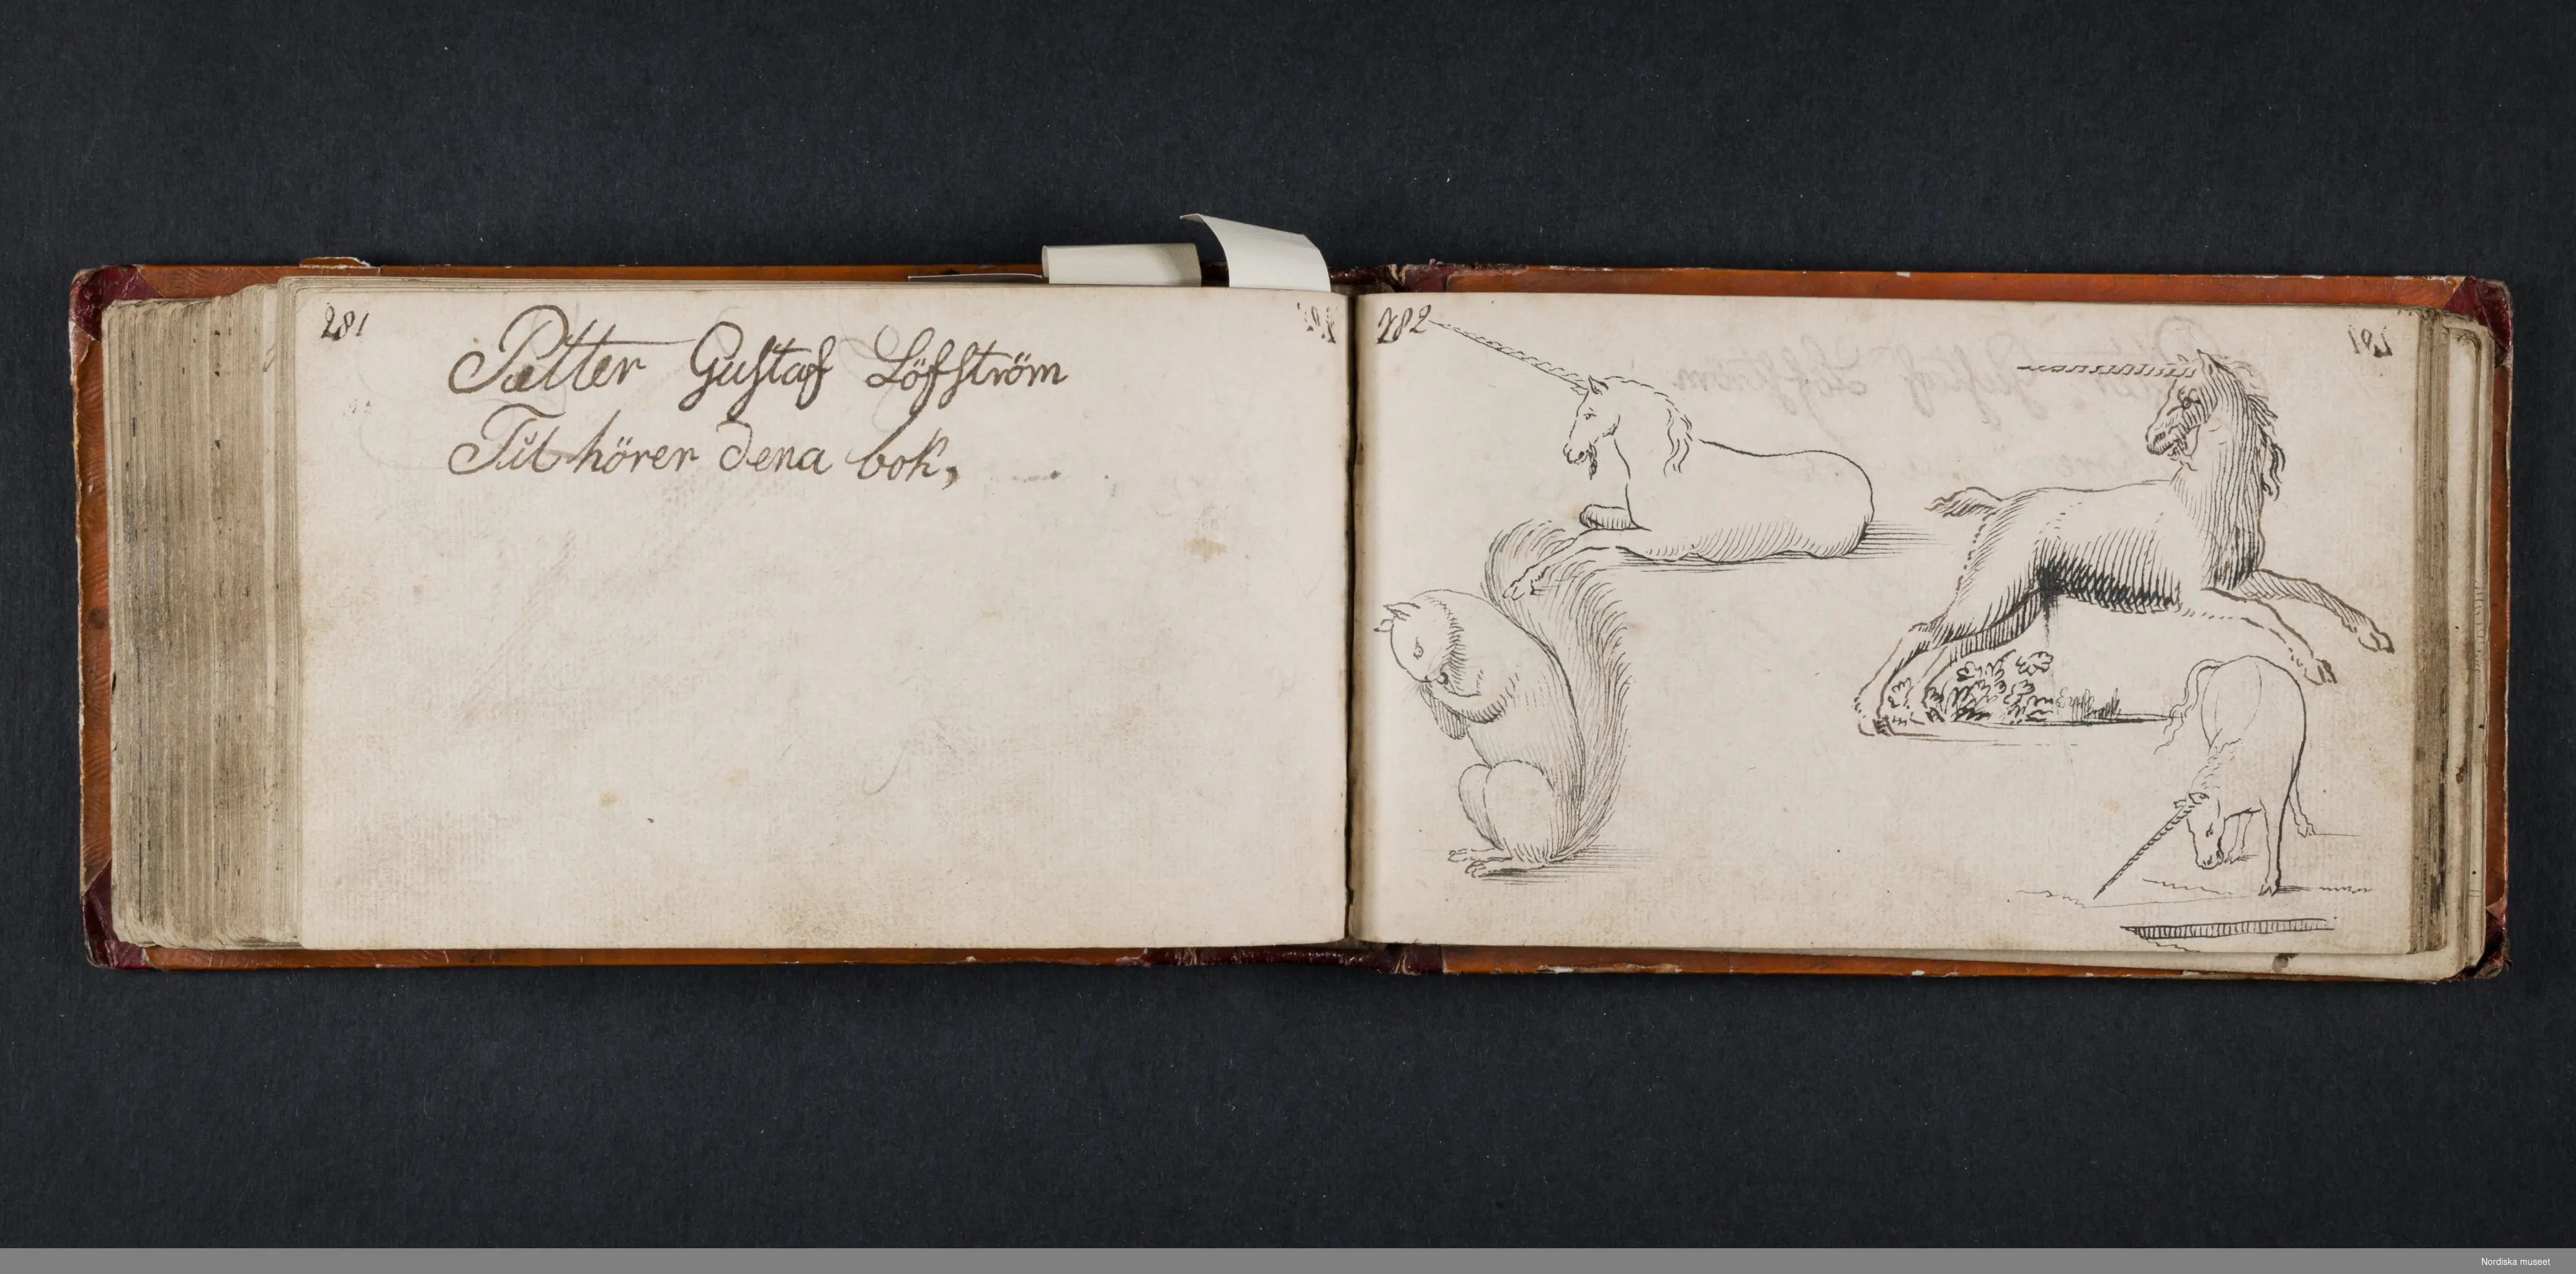 281
Petter Gustaf Löfström
Til hörer dena bok,
282
Nordiska museet